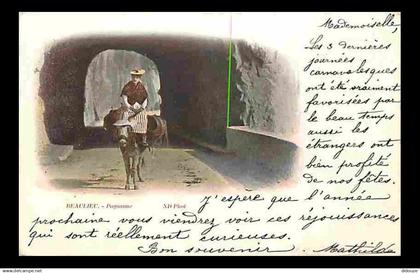 Mademoiselle,
Les 3 dernières
journées
carnavalesques
ont été vraiment
favorisées par
le beau temps
aussi les
étrangers ont
bien profité
de nos fêtes.
BEAULIEU. - Paysanne
ND Phot
J'espère que l'année
prochaine vous viendrez voir ces rejouissances
qui sont réellement curieuses.
Bon souvenir
Mathilde